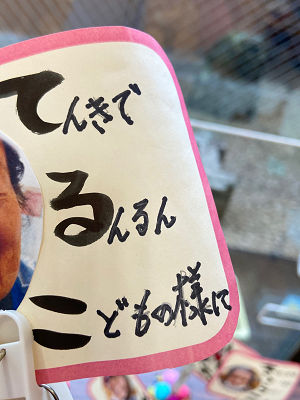 てんきで
るんるん
こどもの様に